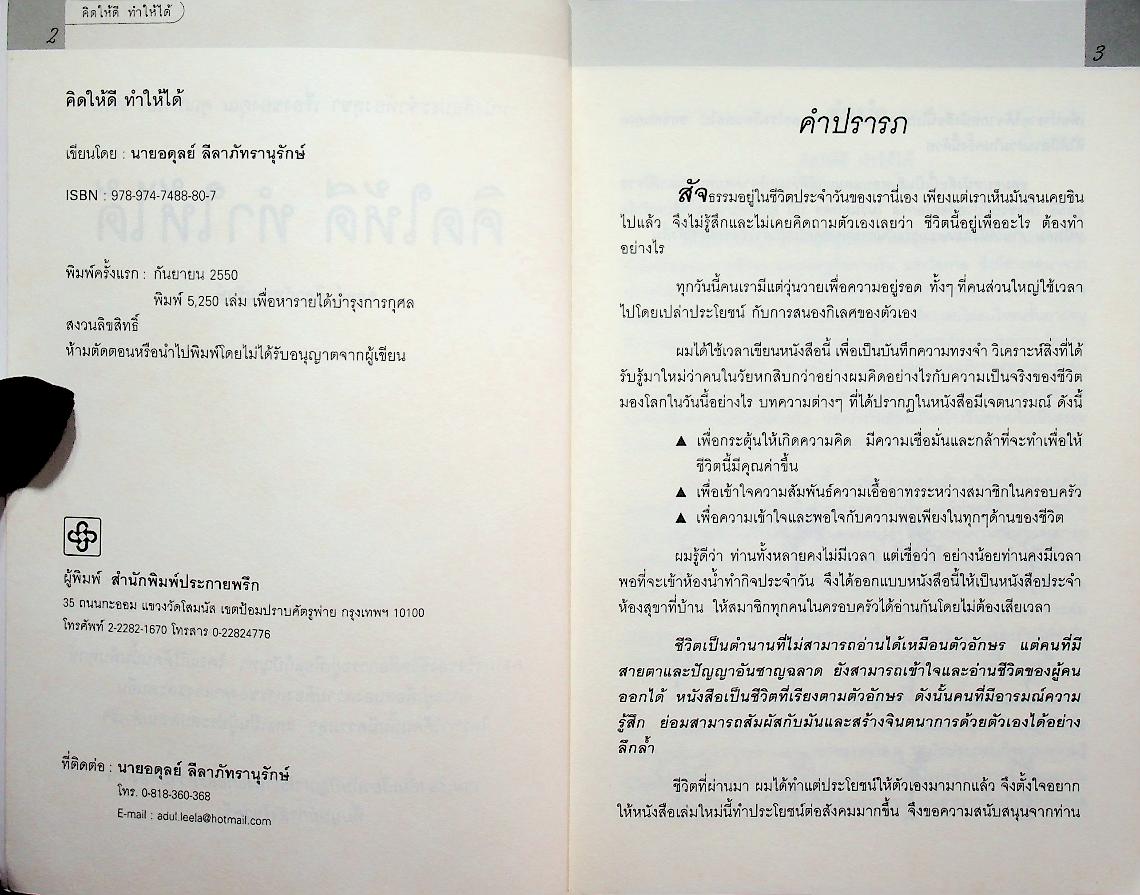 2
คิดให้ดี ทำให้ได้
คิดให้ดี ทำให้ได้
เขียนโดย : นายอดุลย์ ลีลาภัทรานุรักษ์
ISBN : 978-974-7488-80-7
พิมพ์ครั้งแรก : กันยายน 2550
พิมพ์ 5,250 เล่ม เพื่อหารายได้บำรุงการกุศล
สงวนลิขสิทธิ์
ห้ามตัดตอนหรือนำไปพิมพ์โดยไม่ได้รับอนุญาตจากผู้เขียน
ผู้พิมพ์ สำนักพิมพ์ประกายพรึก
35 ถนนกะออม แขวงวัดโสมนัส เขตป้อมปราบศัตรูพ่าย กรุงเทพฯ 10100
โทรศัพท์ 2-2282-1670 โทรสาร 0-22824776
ที่ติดต่อ : นายอดุลย์ ลีลาภัทรานุรักษ์
โทร. 0-818-360-368
E-mail : adul.leela@hotmail.com
3
คำปรารภ
สัจธรรมอยู่ในชีวิตประจำวันของเรานี่เอง เพียงแต่เราเห็นมันจนเคยชิน
ไปแล้ว จึงไม่รู้สึกและไม่เคยคิดถามตัวเองเลยว่า ชีวิตนี้อยู่เพื่ออะไร ต้องทำ
อย่างไร
ทุกวันนี้คนเรามีแต่วุ่นวายเพื่อความอยู่รอด ทั้งๆ ที่คนส่วนใหญ่ใช้เวลา
ไปโดยเปล่าประโยชน์ กับการสนองกิเลศของตัวเอง
ผมได้ใช้เวลาเขียนหนังสือนี้ เพื่อเป็นบันทึกความทรงจำ วิเคราะห์สิ่งที่ได้
รับรู้มาใหม่ว่าคนในวัยหกสิบกว่าอย่างผมคิดอย่างไรกับความเป็นจริงของชีวิต
มองโลกในวันนี้อย่างไร บทความต่างๆ ที่ได้ปรากฏในหนังสือมีเจตนารมณ์ ดังนี้
▲ เพื่อกระตุ้นให้เกิดความคิด มีความเชื่อมั่นและกล้าที่จะทำเพื่อให้
ชีวิตนี้มีคุณค่าขึ้น
▲ เพื่อเข้าใจความสัมพันธ์ความเอื้ออาทรระหว่างสมาชิกในครอบครัว
▲ เพื่อความเข้าใจและพอใจกับความพอเพียงในทุกๆด้านของชีวิต
ผมรู้ดีว่า ท่านทั้งหลายคงไม่มีเวลา แต่เชื่อว่า อย่างน้อยท่านคงมีเวลา
พอที่จะเข้าห้องน้ำทำกิจประจำวัน จึงได้ออกแบบหนังสือนี้ให้เป็นหนังสือประจำ
ห้องสุขาที่บ้าน ให้สมาชิกทุกคนในครอบครัวได้อ่านกันโดยไม่ต้องเสียเวลา
ชีวิตเป็นตำนานที่ไม่สามารถอ่านได้เหมือนตัวอักษร แต่คนที่มี
สายตาและปัญญาอันชาญฉลาด ยังสามารถเข้าใจและอ่านชีวิตของผู้คน
ออกได้ หนังสือเป็นชีวิตที่เรียงตามตัวอักษร ดังนั้นคนที่มีอารมณ์ความ
รู้สึก ย่อมสามารถสัมผัสกับมันและสร้างจินตนาการด้วยตัวเองได้อย่าง
ลึกล้ำ
ชีวิตที่ผ่านมา ผมได้ทำแต่ประโยชน์ให้ตัวเองมามากแล้ว จึงตั้งใจอยาก
ให้หนังสือเล่มใหม่นี้ทำประโยชน์ต่อสังคมมากขึ้น จึงขอความสนับสนุนจากท่าน